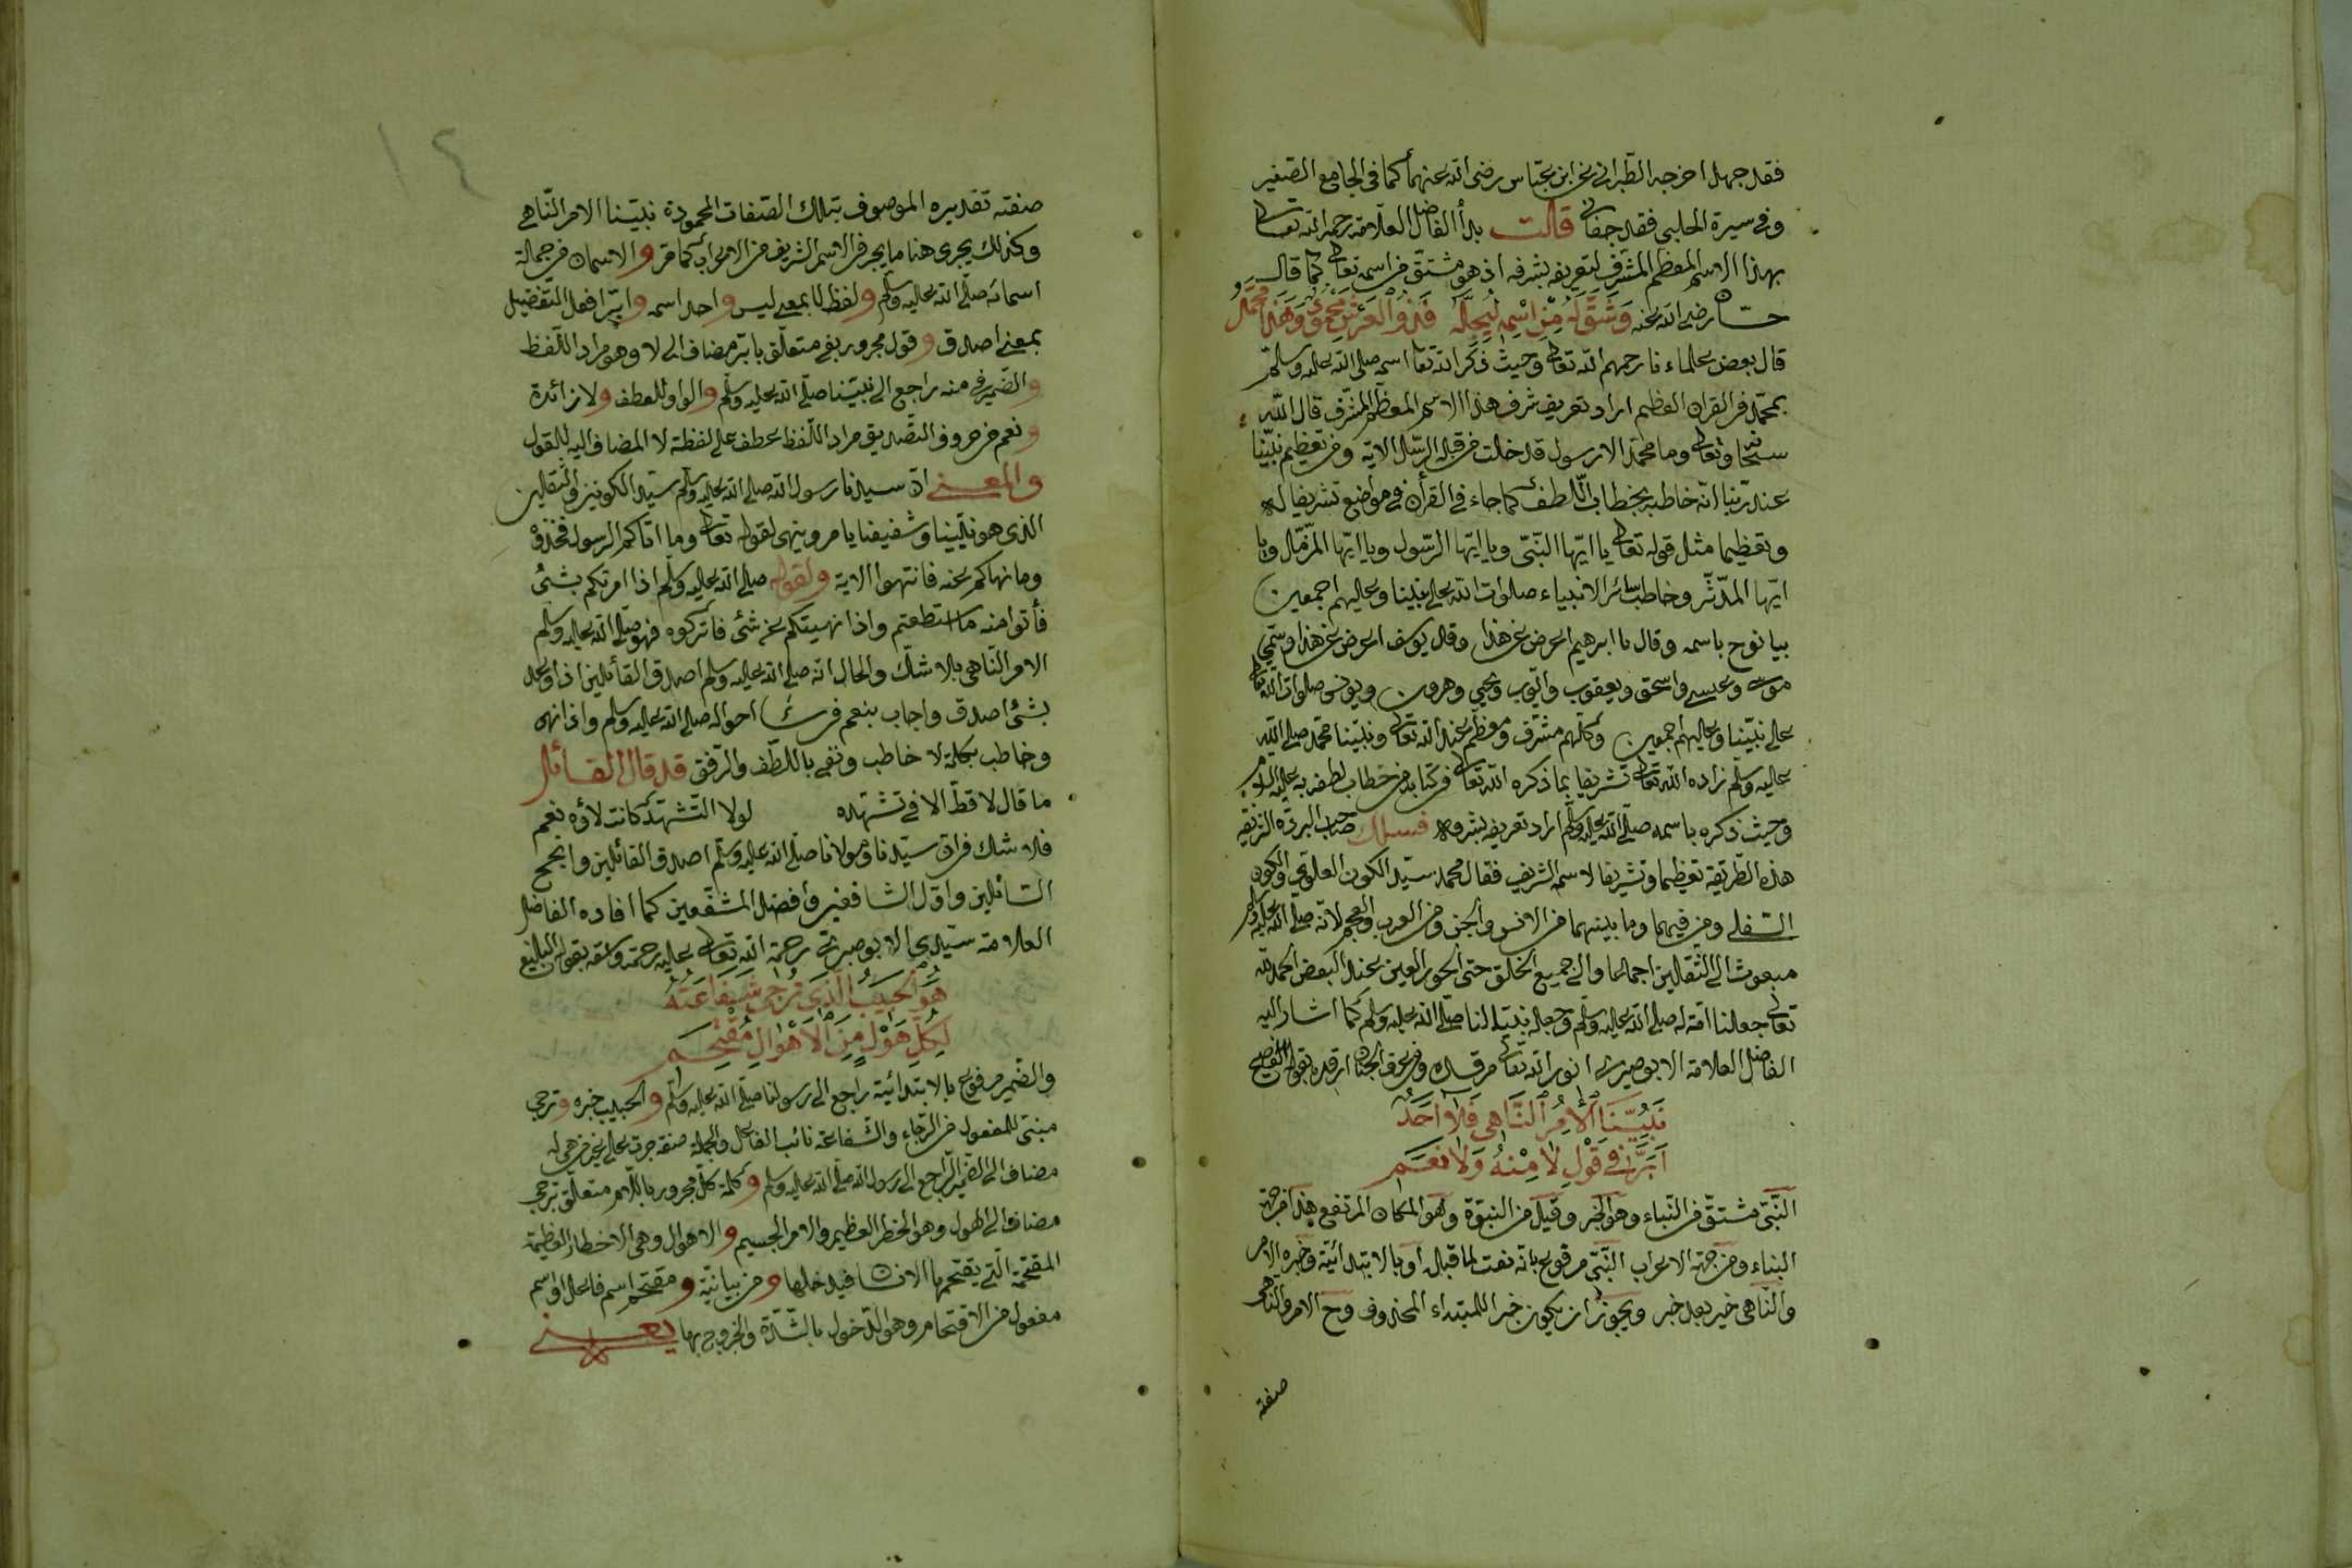 فقد جهل اخرجه الطبرانى عن ابن عباس رضى الله عنهما كما فى الجامع الصغير
وفى سيرة الحلبى فقد جفانى قالت بدأ الفاضل العلامة رحمه الله تعالى
بهذا الاسم المعظم المشرف لتعريفه بشرفه اذ هو مشتق من اسمه تعالى كما قال
حسان رضى الله عنه وَشَقَّ لَهُ مِنْ اسْمِهِ لِيُجِلَّهُ فَذُو الْعَرْشِ مَحْمُودٌ وَهَذَا مُحَمَّدُ
قال بعض علماءنا رحمهم الله تعالى وحيث ذكر الله تعالى اسمه صلى الله عليه وسلم
بمحمد فى القران العظيم اراد تعريف شرف هذا الاسم المعظم المشرف قال الله
سبحانه وتعالى وما محمد الا رسول قد خلت من قبله الرسل الاية ومن تعظيم نبينا
عند ربنا انه خاطبه بخطاب اللطف كما جاء فى القرأن فى مواضع تشريفا له
وتعظيما مثل قوله تعالى يا ايها النبى ويا ايها الرسول ويا ايها المزمل ويا
ايها المدثر وخاطب سائر الانبياء صلوات الله على نبينا وعليهم اجمعين
بيا نوح باسمه وقال يا ابرهيم اعرض عن هذا وقال يوسف اعرض عن هذا وسمى
موسى وعيسى واسحق ويعقوب وايوب ويحيى وهرون ويونس صلوات الله تعالى
على نبينا وعليهم اجمعين وكلهم مشرف ومعظم عند الله تعالى ونبينا محمد صلى الله
عليه وسلم زاده الله تعالى تشريفا بما ذكره الله تعالى فى كتابه من خطاب لطفه به عليه السلام
وحيث ذكره باسمه صلى الله عليه وسلم اراد تعريفه بشرفه فسلك صاحب البردة الشريفة
هذه الطريقة تعظيما وتشريفا لاسمه الشريف فقال محمد سيد الكون العلوى والكون
السفلى ومن فيهما وما بينهما من الانس والجن ومن العرب والعجم لانه صلى الله عليه وسلم
مبعوث الى الثقلين اجمالا والى جميع الخلق حتى الحور العين عند البعض الحمد لله
تعالى جعلنا امة له صلى الله عليه وسلم وجعله نبيا لنا صلى الله عليه وسلم كما اشار اليه
الفاضل العلامة الابوصيرى انور الله تعالى مرقده وفى غرف الجنان ارقده بقوله الفصيح
نَبِيُّنَا الْآمِرُ النَّاهِى فَلَا اَحَدٌ
اَبَرَّ فِى قَوْلِ لَا مِنْهُ وَلَا نَعَمِ
النبى مشتق من النباء وهو الخبر وقيل من النبوة وهو المكان المرتفع هذا من جهة
البناء ومن جهة الاعراب النبى مرفوع بانه نعت لما قبل او بالابتدائية وخبره الامر
والناهى خبر بعد خبر ويجوز ان يكون خبرا للمبتداء المحذوف وح الامر والناهى
صفته
١٤
صفته تقديره الموصوف بتلك الصفات المحمودة نبينا الامر الناهى
وكذلك يجرى هنا ما يجرى فى الاسم الشريف من الاعراب كما مر والاسمان من جملة
اسمائه صلى الله عليه وسلم ولفظ لا بمعنى ليس واحد اسمه وابر افعل التفضيل
بمعنى اصدق وقول مجرور بفى متعلق بابر مضاف الى لا وهو مراد اللفظ
والضمير فى منه راجع الى نبينا صلى الله عليه وسلم والواو للعطف ولا زائدة
ونعم من حروف التصديق مراد اللفظ عطف على لفظة لا المضاف اليه للقول
والمعنى ان سيدنا رسول الله صلى الله عليه وسلم سيد الكونين والثقلين
الذى هو نبينا وشفيعنا يامر وينهى لقوله تعالى وما اتاكم الرسول فخذوه
وما نهاكم عنه فانتهوا الاية ولقوله صلى الله عليه وسلم اذا امرتكم بشئ
فأتوا منه ما استطعتم واذا نهيتكم عن شئ فاتركوه فهو صلى الله عليه وسلم
الامر الناهى بلا شك والحال انه صلى الله عليه وسلم اصدق القائلين اذا وعد
بشئ اصدق واجاب بنعم فى احواله صلى الله عليه وسلم واذا نهى
وخاطب بكلمة لا خاطب ونفى باللطف والرفق قد قال القائل
ما قال لا قط الا فى تشهده لولا التشهد كانت لاؤه نعم
فلا شك فى ان سيدنا ومولانا صلى الله عليه وسلم اصدق القائلين وانجح
السائلين واول الشافعين وافضل المشفعين كما افاده الفاضل
العلامة سيدى الابوصيرى رحمة الله تعالى عليه رحمة واسعة بقوله البليغ
هُوَ الْحَبِيبُ الَّذِى تُرْجَى شَفَاعَتُهُ
لِكُلِّ هَوْلٍ مِنَ الْاَهْوَالِ مُقْتَحِمِ
والضمير مرفوع بالابتدائية راجع الى رسولنا صلى الله عليه وسلم والحبيب خبره وترجى
مبنى للمفعول من الرجاء والشفاعة نائب الفاعل والجملة صفة جرت على غير من هى له
مضاف الى الضمير الراجع الى رسول الله صلى الله عليه وسلم وكلمة كل مجرور باللام متعلق بترجى
مضاف الى الهول وهو الخطر العظيم والامر الجسيم والاهوال وهى الاخطار العظيمة
المقتحمة التى يقتحمها الانسان فيدخلها ومن بيانية ومقتحم اسم فاعل او اسم
مفعول من الاقتحام وهو الدخول بالشدة والخروج بها يعنى